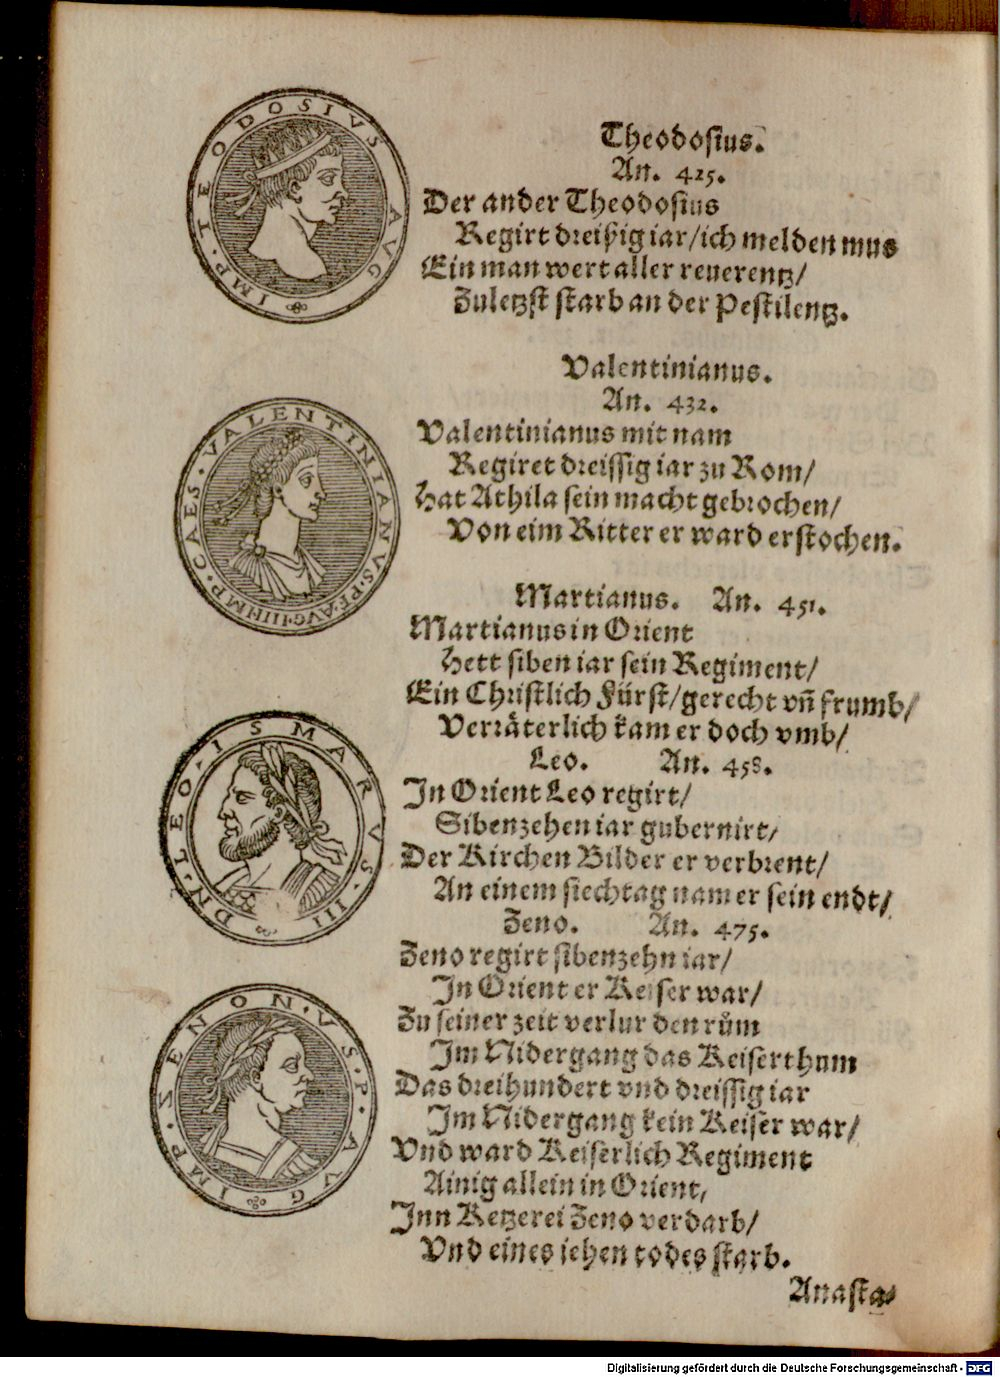 IMP · TEODOSIVS AVG
Theodosius.
An. 425.
Der ander Theodosius
Regirt dreißig iar/ich melden mus
Ein man wert aller reuerentz/
Zuletzst starb an der Pestilentz.
IMP · CAES · VALENTINIANVS · PF · AVG · IIII
Valentinianus.
An. 432.
Valentinianus mit nam
Regiret dreissig iar zu Rom/
Hat Athila sein macht gebrochen/
Von eim Ritter er ward erstochen.
Martianus. An. 451.
Martianus in Orient
Hett siben iar sein Regiment/
Ein Christlich Fürst/gerecht vñ frumb/
Verräterlich kam er doch vmb/
DN · LEO · ISMARVS · III
Leo. An. 458.
In Orient Leo regirt/
Sibenzehen iar gubernirt/
Der Kirchen Bilder er verbrent/
An einem siechtag nam er sein endt/
Zeno. An. 475.
Zeno regirt sibenzehn iar/
In Orient er Keiser war/
IMP · SENON · VS · P · AVG
Zu seiner zeit verlur den rům
Im Nidergang das Keiserthum
Das dreihundert vnd dreissig iar
Im Nidergang kein Keiser war/
Vnd ward Keiserlich Regiment
Ainig allein in Orient,
Inn Ketzerei Zeno verdarb/
Vnd eines jehen todes starb.
Anasta-
Digitalisierung gefördert durch die Deutsche Forschungsgemeinschaft - DFG